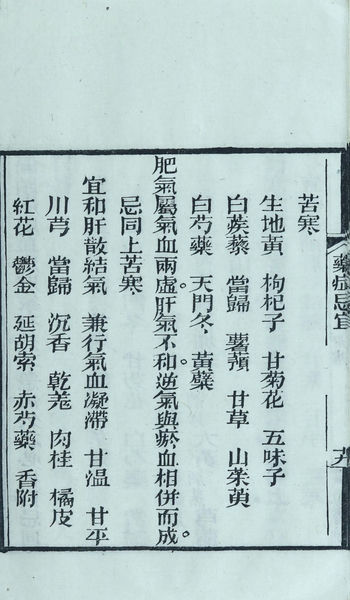 苦寒
生地黃 枸杞子 甘菊花 五味子
白蒺藜 當歸 薯蕷 甘草 山茱萸
白芍藥 天門冬 黃蘗
肥氣屬氣血兩虛。肝氣不和。逆氣與瘀血相併而成。
忌同上苦寒
宜和肝散結氣 兼行氣血凝滯 甘溫 甘平
川芎 當歸 沉香 乾羗 肉桂 橘皮
紅花 鬱金 延胡索 赤芍藥 香附
藥症忌宜